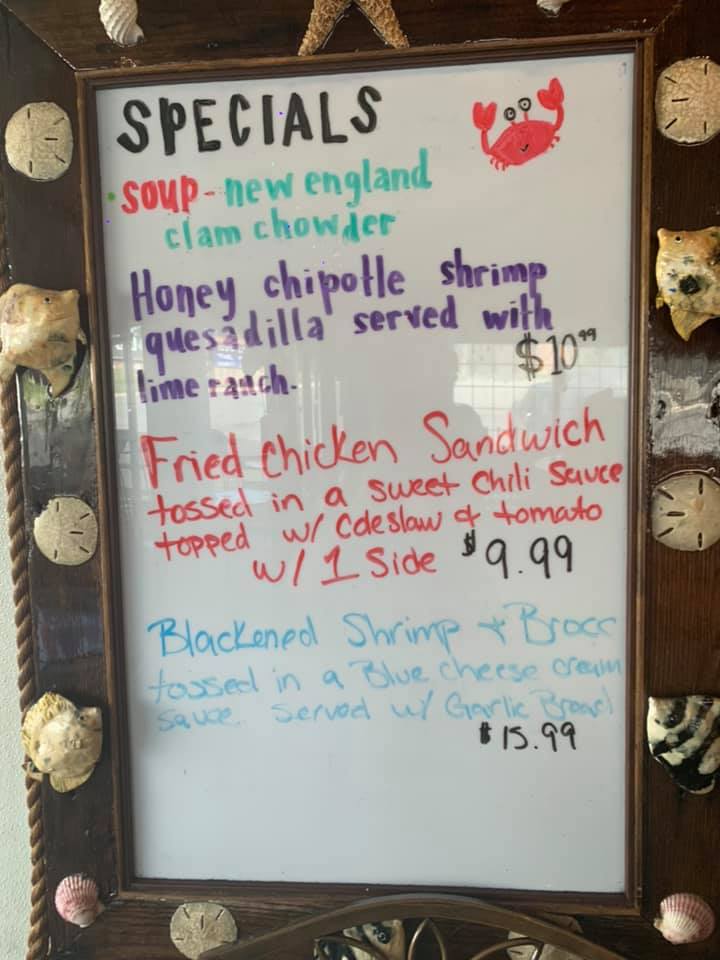 SPECIALS
• soup - new england
clam chowder
Honey chipotle shrimp
quesadilla served with
$10.99
lime ranch.
Fried Chicken Sandwich
tossed in a sweet chili sauce
topped w/ Coleslaw & tomato
w/ 1 Side $9.99
Blackened Shrimp & Brocc
tossed in a Blue cheese cream
sauce. Served w/ Garlic Bread
$15.99